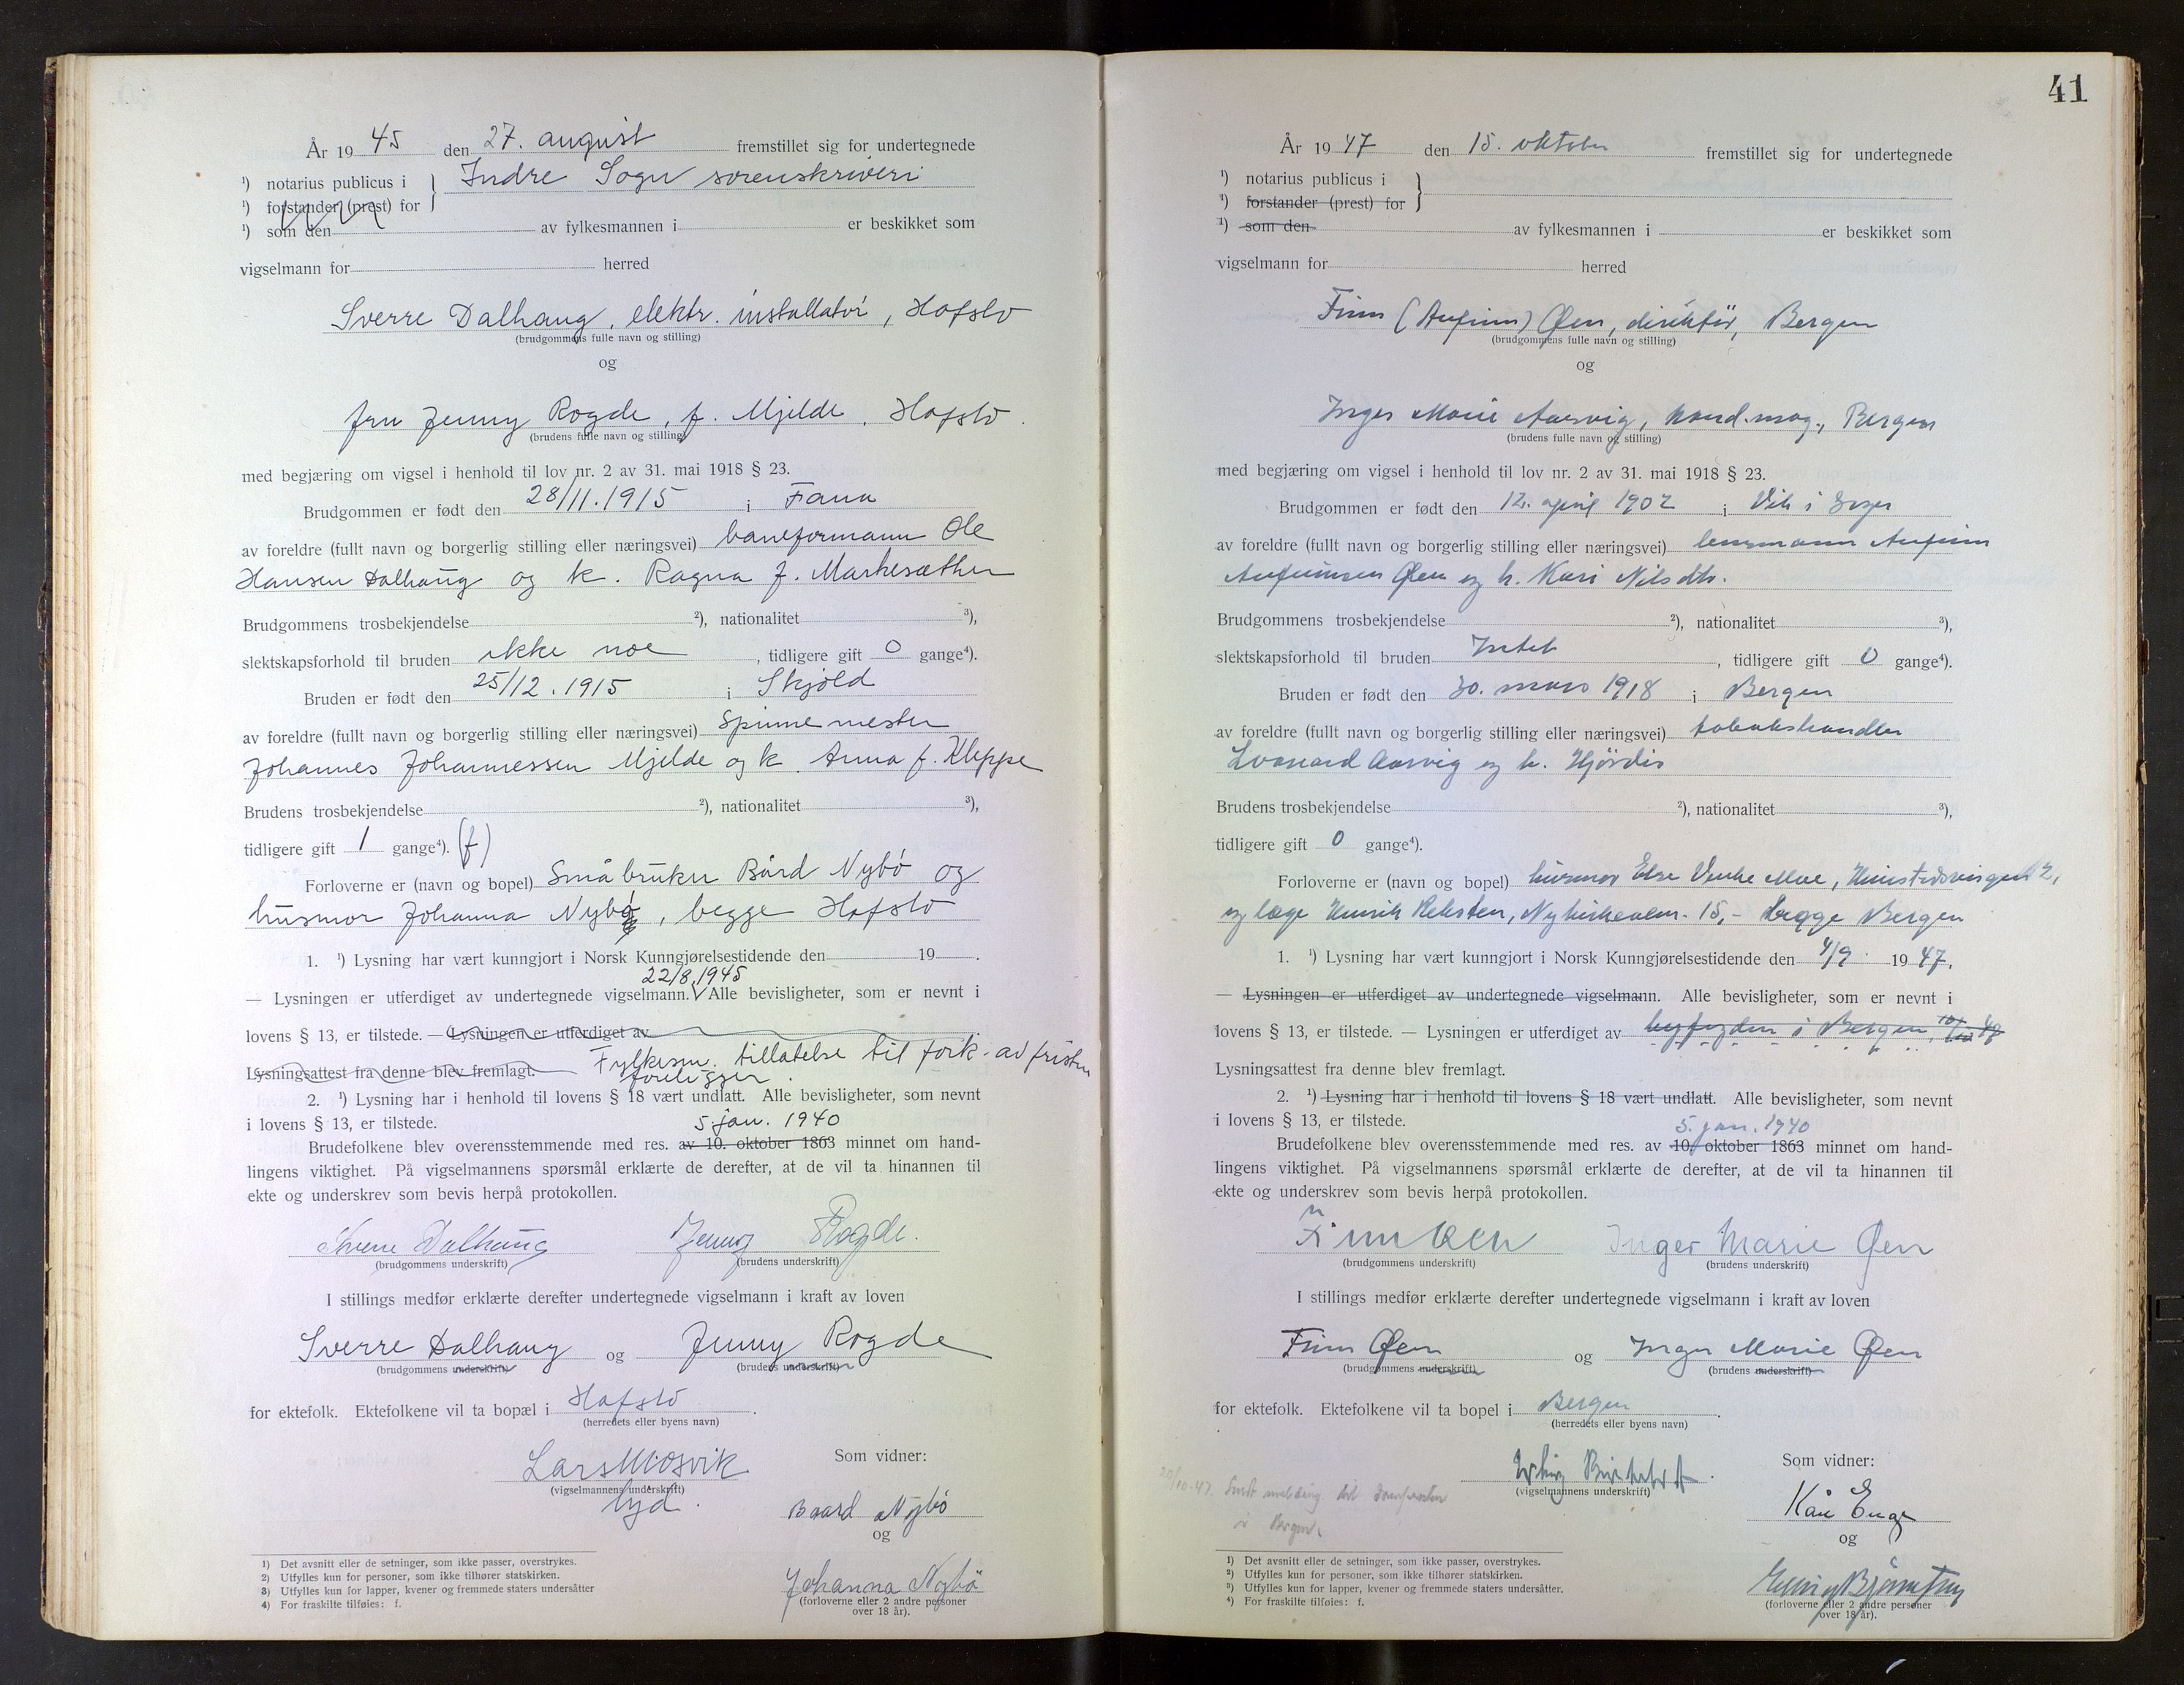 År 1945 den 27. august fremstillet sig for undertegnede
¹) notarius publicus i } Indre Sogn sorenskriveri
¹) forstander (prest) for
¹) som den av fylkesmannen i er beskikket som
vigselmann for herred
Sverre Dalhaug, elektr. installatör, Hafslo
(brudgommens fulle navn og stilling)
og
fru Jenny Rogde, f. Mjelde, Hafslo.
(brudens fulle navn og stilling)
med begjæring om vigsel i henhold til lov nr. 2 av 31. mai 1918 § 23.
Brudgommen er født den 28/11.1915 i Fana
av foreldre (fullt navn og borgerlig stilling eller næringsvei) baneformann Ole
Hansen Dalhaug og k. Ragna f. Markesæther
Brudgommens trosbekjendelse ²), nationalitet ³),
slektskapsforhold til bruden ikke noe, tidligere gift 0 gange⁴).
Bruden er født den 25/12.1915 i Skjold
av foreldre (fullt navn og borgerlig stilling eller næringsvei) Spinnemester
Johannes Johannessen Mjelde og k. Anna f. Kleppe
Brudens trosbekjendelse ²), nationalitet ³),
tidligere gift 1 gange⁴). (f)
Forloverne er (navn og bopel) Småbruker Bård Nybö og
husmor Johanna Nybö, begge Hafslo
1. ¹) Lysning har vært kunngjort i Norsk Kunngjørelsestidende den 19 .
22/8.1945
— Lysningen er utferdiget av undertegnede vigselmann. Alle bevisligheter, som er nevnt i
lovens § 13, er tilstede. — Lysningen er utferdiget av
Lysningsattest fra denne blev fremlagt. Fylkesm. tillatelse til fork. av fristen
foreligger.
2. ¹) Lysning har i henhold til lovens § 18 vært undlatt. Alle bevisligheter, som nevnt
i lovens § 13, er tilstede. 5. jan. 1940
Brudefolkene blev overensstemmende med res. av 10. oktober 1863 minnet om hand-
lingens viktighet. På vigselmannens spørsmål erklærte de derefter, at de vil ta hinannen til
ekte og underskrev som bevis herpå protokollen.
Sverre Dalhaug Jenny Rogde.
(brudgommens underskrift) (brudens underskrift)
I stillings medfør erklærte derefter undertegnede vigselmann i kraft av loven
Sverre Dalhaug og Jenny Rogde
(brudgommens underskrift) (brudens underskrift)
for ektefolk. Ektefolkene vil ta bopæl i Hafslo.
(herredets eller byens navn)
Lars Mosvik Som vidner:
(vigselmannens underskrift)
Baard Nybö
og
Johanna Nybö
(forloverne eller 2 andre personer
over 18 år).
1) Det avsnitt eller de setninger, som ikke passer, overstrykes.
2) Utfylles kun for personer, som ikke tilhører statskirken.
3) Utfylles kun for lapper, kvener og fremmede staters undersåtter
4) For fraskilte tilføies: f.
41
År 1947 den 15. oktober fremstillet sig for undertegnede
¹) notarius publicus i }
¹) forstander (prest) for
¹) som den av fylkesmannen i er beskikket som
vigselmann for herred
Finn (Anfinn) Øen, direktör, Bergen
(brudgommens fulle navn og stilling)
og
Inger Marie Aarvig, kand.mag., Bergen
(brudens fulle navn og stilling)
med begjæring om vigsel i henhold til lov nr. 2 av 31. mai 1918 § 23.
Brudgommen er født den 12. april 1902 i Vik i Sogn
av foreldre (fullt navn og borgerlig stilling eller næringsvei) lensmann Anfinn
Anfinnsen Øen og h. Kari Nilsdtr.
Brudgommens trosbekjendelse ²), nationalitet ³),
slektskapsforhold til bruden Intet, tidligere gift 0 gange⁴).
Bruden er født den 30. mars 1918 i Bergen
av foreldre (fullt navn og borgerlig stilling eller næringsvei) tobakshandler
Leonard Aarvig og h. Hjördis
Brudens trosbekjendelse ²), nationalitet ³),
tidligere gift 0 gange⁴).
Forloverne er (navn og bopel) husmor Else Venke Moe, 2,
og læge Henrik Reksten, 15,- begge Bergen
1. ¹) Lysning har vært kunngjort i Norsk Kunngjørelsestidende den 4/9 1947.
— Lysningen er utferdiget av undertegnede vigselmann. Alle bevisligheter, som er nevnt i
lovens § 13, er tilstede. — Lysningen er utferdiget av byfogden i Bergen
Lysningsattest fra denne blev fremlagt.
2. ¹) Lysning har i henhold til lovens § 18 vært undlatt. Alle bevisligheter, som nevnt
i lovens § 13, er tilstede. 5. jan. 1940
Brudefolkene blev overensstemmende med res. av 10. oktober 1863 minnet om hand-
lingens viktighet. På vigselmannens spørsmål erklærte de derefter, at de vil ta hinannen til
ekte og underskrev som bevis herpå protokollen.
Finn Øen Inger Marie Øen
(brudgommens underskrift) (brudens underskrift)
I stillings medfør erklærte derefter undertegnede vigselmann i kraft av loven
Finn Øen og Inger Marie Øen
(brudgommens underskrift) (brudens underskrift)
for ektefolk. Ektefolkene vil ta bopel i Bergen.
(herredets eller byens navn)
Som vidner:
(vigselmannens underskrift)
20/10-47. Sendt melding til
i Bergen.
Kåre
og
(forloverne eller 2 andre personer
over 18 år).
1) Det avsnitt eller de setninger, som ikke passer, overstrykes.
2) Utfylles kun for personer, som ikke tilhører statskirken.
3) Utfylles kun for lapper, kvener og fremmede staters undersåtter.
4) For fraskilte tilføies: f.